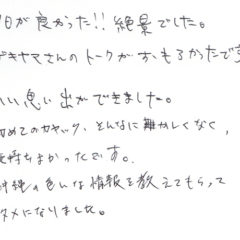 日が良かった!!絶景でした。
キヤマさんのトークがおもろかったです
いい思い出ができました。
めてのカヤック、そんなに難かしくなく、
気持ちよかったです。
沖縄の色んな情報を教えてもらって
タメになりました。